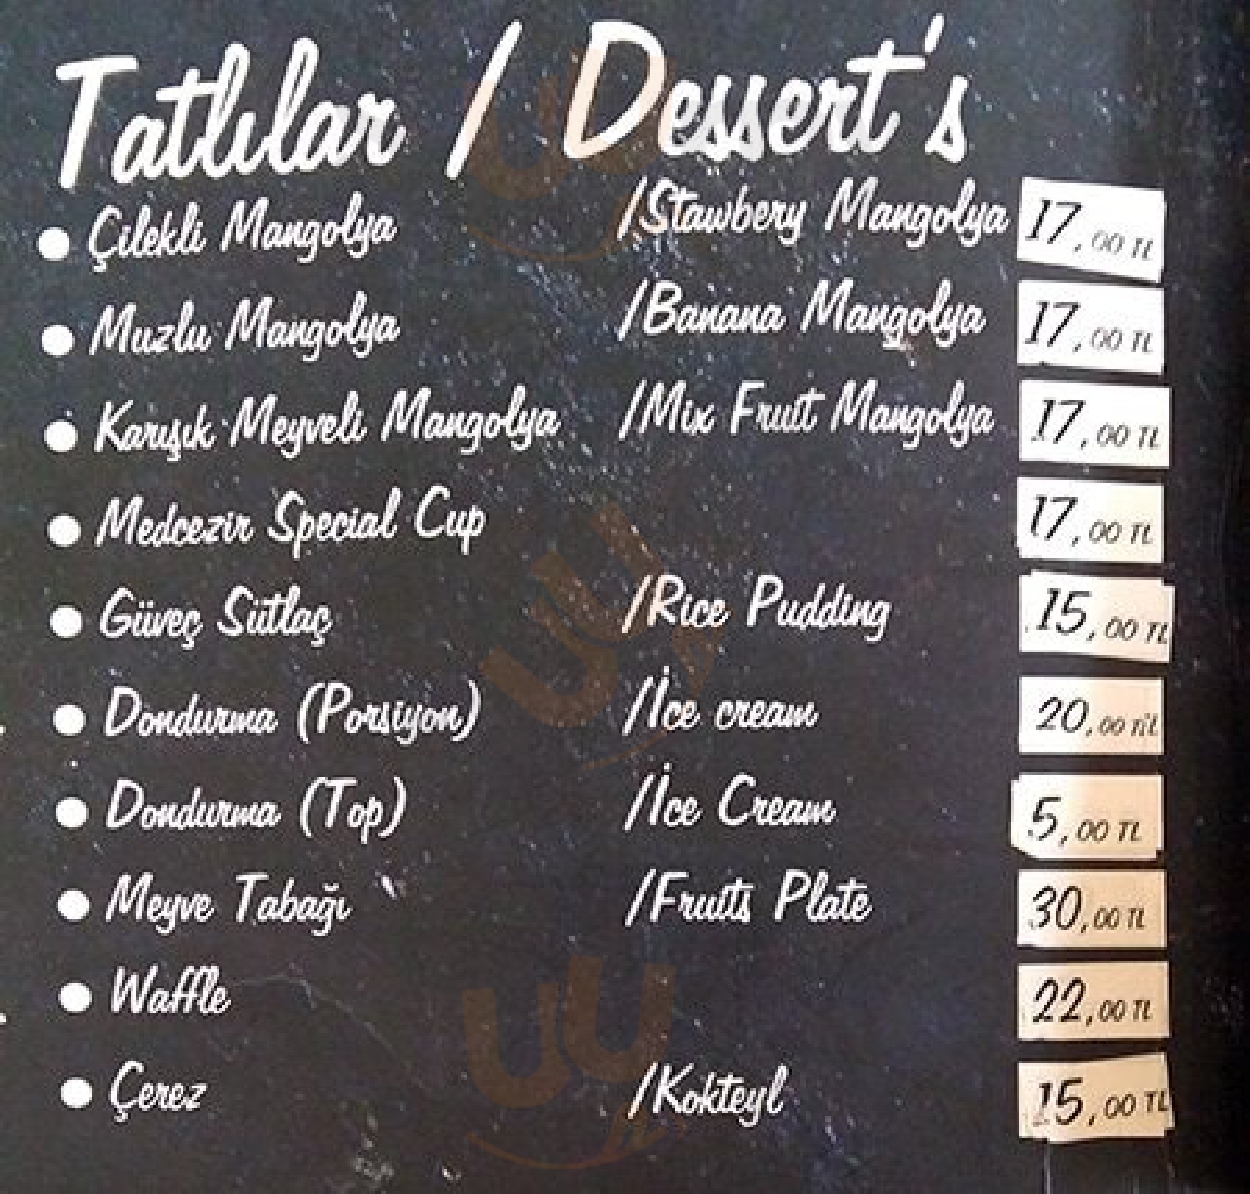 Tatlılar / Dessert's
Çilekli Mangolya /Stawbery Mangolya 17,00 TL
Muzlu Mangolya /Banana Mangolya 17,00 TL
Karışık Meyveli Mangolya /Mix Fruit Mangolya 17,00 TL
Medcezir Special Cup 17,00 TL
Güveç Sütlaç /Rice Pudding 15,00 TL
Dondurma (Porsiyon) /İce cream 20,00
Dondurma (Top) /İce Cream 5,00 TL
Meyve Tabağı /Fruits Plate 30,00 TL
Waffle 22,00 TL
Çerez /Kokteyl 15,00 TL